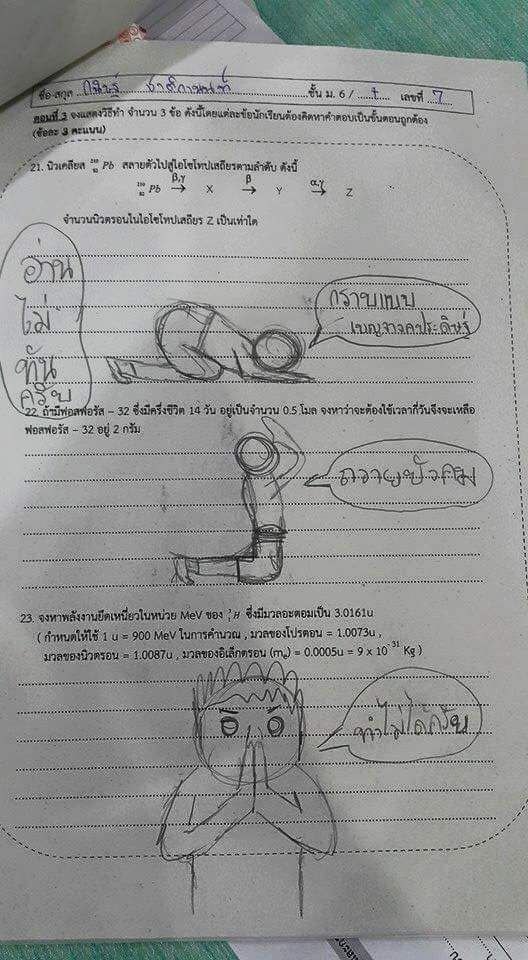 ชื่อ-สกุล ชั้น ม. 6 / 7 เลขที่ 7
ตอนที่ 3 จงแสดงวิธีทำ จำนวน 3 ข้อ ดังนี้โดยแต่ละข้อนักเรียนต้องคิดหาคำตอบเป็นขั้นตอนถูกต้อง
(ข้อละ 3 คะแนน)
21. นิวเคลียส Pb สลายตัวไปสู่ไอโซโทปเสถียรตามลำดับ ดังนี้
Pb β,γ → X β → Y α,γ → Z
จำนวนนิวตรอนในไอโซโทปเสถียร Z เป็นเท่าใด
อ่าน
ไม่
ทัน
ครับ
กราบแบบ
เบญจางคประดิษฐ์
22. ถ้ามีฟอสฟอรัส – 32 ซึ่งมีครึ่งชีวิต 14 วัน อยู่เป็นจำนวน 0.5 โมล จงหาว่าจะต้องใช้เวลากี่วันจึงจะเหลือ
ฟอสฟอรัส – 32 อยู่ 2 กรัม
ถวายบังคม
23. จงหาพลังงานยึดเหนี่ยวในหน่วย MeV ของ H ซึ่งมีมวลอะตอมเป็น 3.0161u
( กำหนดให้ใช้ 1 u = 900 MeV ในการคำนวณ , มวลของโปรตอน = 1.0073u ,
มวลของนิวตรอน = 1.0087u , มวลของอิเล็กตรอน (mₑ) = 0.0005u = 9 x 10⁻³¹ Kg )
ทำไม่ได้ครับ